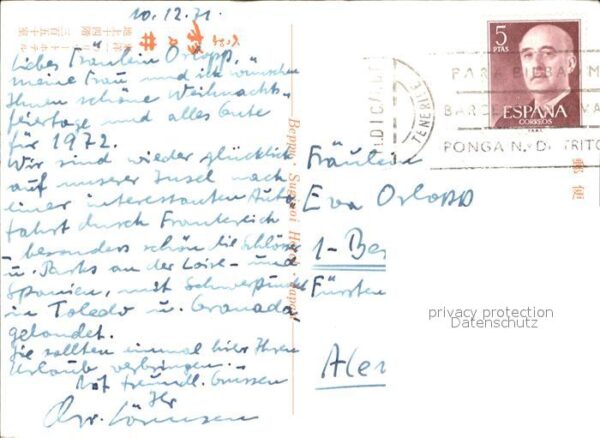 10.12.71.
Liebes Fräulein Orlopp,
meine Frau und ich wünschen
Ihnen schöne Weihnachts-
feiertage und alles Gute
für 1972.
Wir sind wieder glücklich
auf unserer Insel nach
einer interessanten Auto-
fahrt durch Frankreich
- besonders schön die Schlösser
u. Parks an der Loire - und
Spanien, mit Schwerpunkt
in Toledo u. Granada,
gelandet.
Sie sollten einmal hier Ihren
Urlaub verbringen.
Mit freundl. Grüssen
Ihr
Beppu Suginoi Hotel
地上十四階
三百五十室
郵便
5
PTAS
ESPAÑA
CORREOS
TENERIFE
PARA
BARCE
PONGA N.º DISTRITO
Fräulein
Eva Orlopp
1-Ber
Fürsten
Alem
privacy protection
Datenschutz